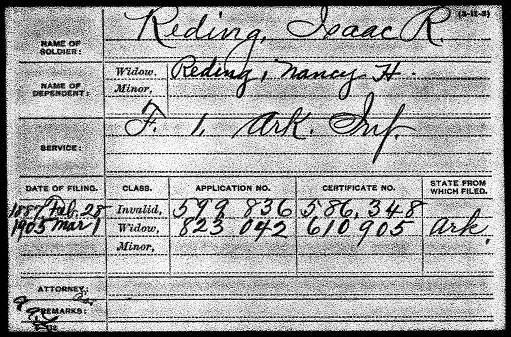 (3-11-3)
NAME OF SOLDIER: Reding, Isaac R.
NAME OF DEPENDENT: Widow, Reding, Nancy H.
Minor,
SERVICE: F. 1, Ark. Inf.
DATE OF FILING. CLASS. APPLICATION NO. CERTIFICATE NO. STATE FROM WHICH FILED.
1887 Feb. 28 Invalid, 599 836 586,348
1905 Mar 1 Widow, 823 042 610 905 Ark.
Minor,
ATTORNEY:
REMARKS: